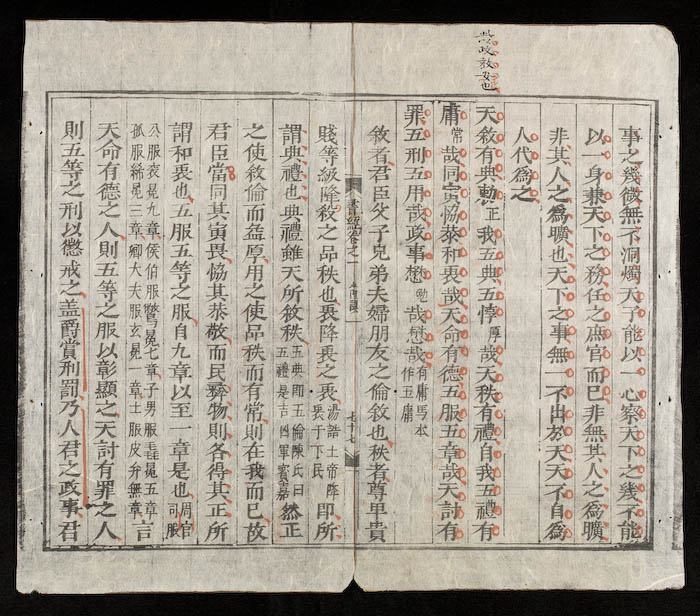 此政教安也
事之幾微無不洞燭天子能以一心察天下之幾不能
以一身兼天下之務任之庶官而巳非無其人之爲曠
非其人之爲曠也天下之事無一不出於天天不自爲
人代爲之
天敘有典勑正我五典五惇厚哉天秩有禮自我五禮有
庸常哉同寅協恭和衷哉天命有德五服五章哉天討有
罪五刑五用哉政事懋勉哉懋哉有庸馬本作五庸
敘者君臣父子兄弟夫婦朋友之倫敘也秩者尊卑貴
書經卷之一 七十七
賤等級隆殺之品秩也衷降衷之衷湯誥上帝降衷于下民即所
謂典禮也典禮雖天所敘秩五典即五倫陳氏曰五禮是吉凶軍賓嘉然正
之使敘倫而益厚用之使品秩而有常則在我而巳故
君臣當同其寅畏協其恭敬而民彛物則各得其正所
謂和衷也五服五等之服自九章以至一章是也周官司服
公服衮冕九章侯伯服鷩冕七章子男服毳冕五章孤服絺冕三章卿大夫服玄冕一章士服皮弁無章言
天命有德之人則五等之服以彰顯之天討有罪之人
則五等之刑以懲戒之盖爵賞刑罰乃人君之政事君